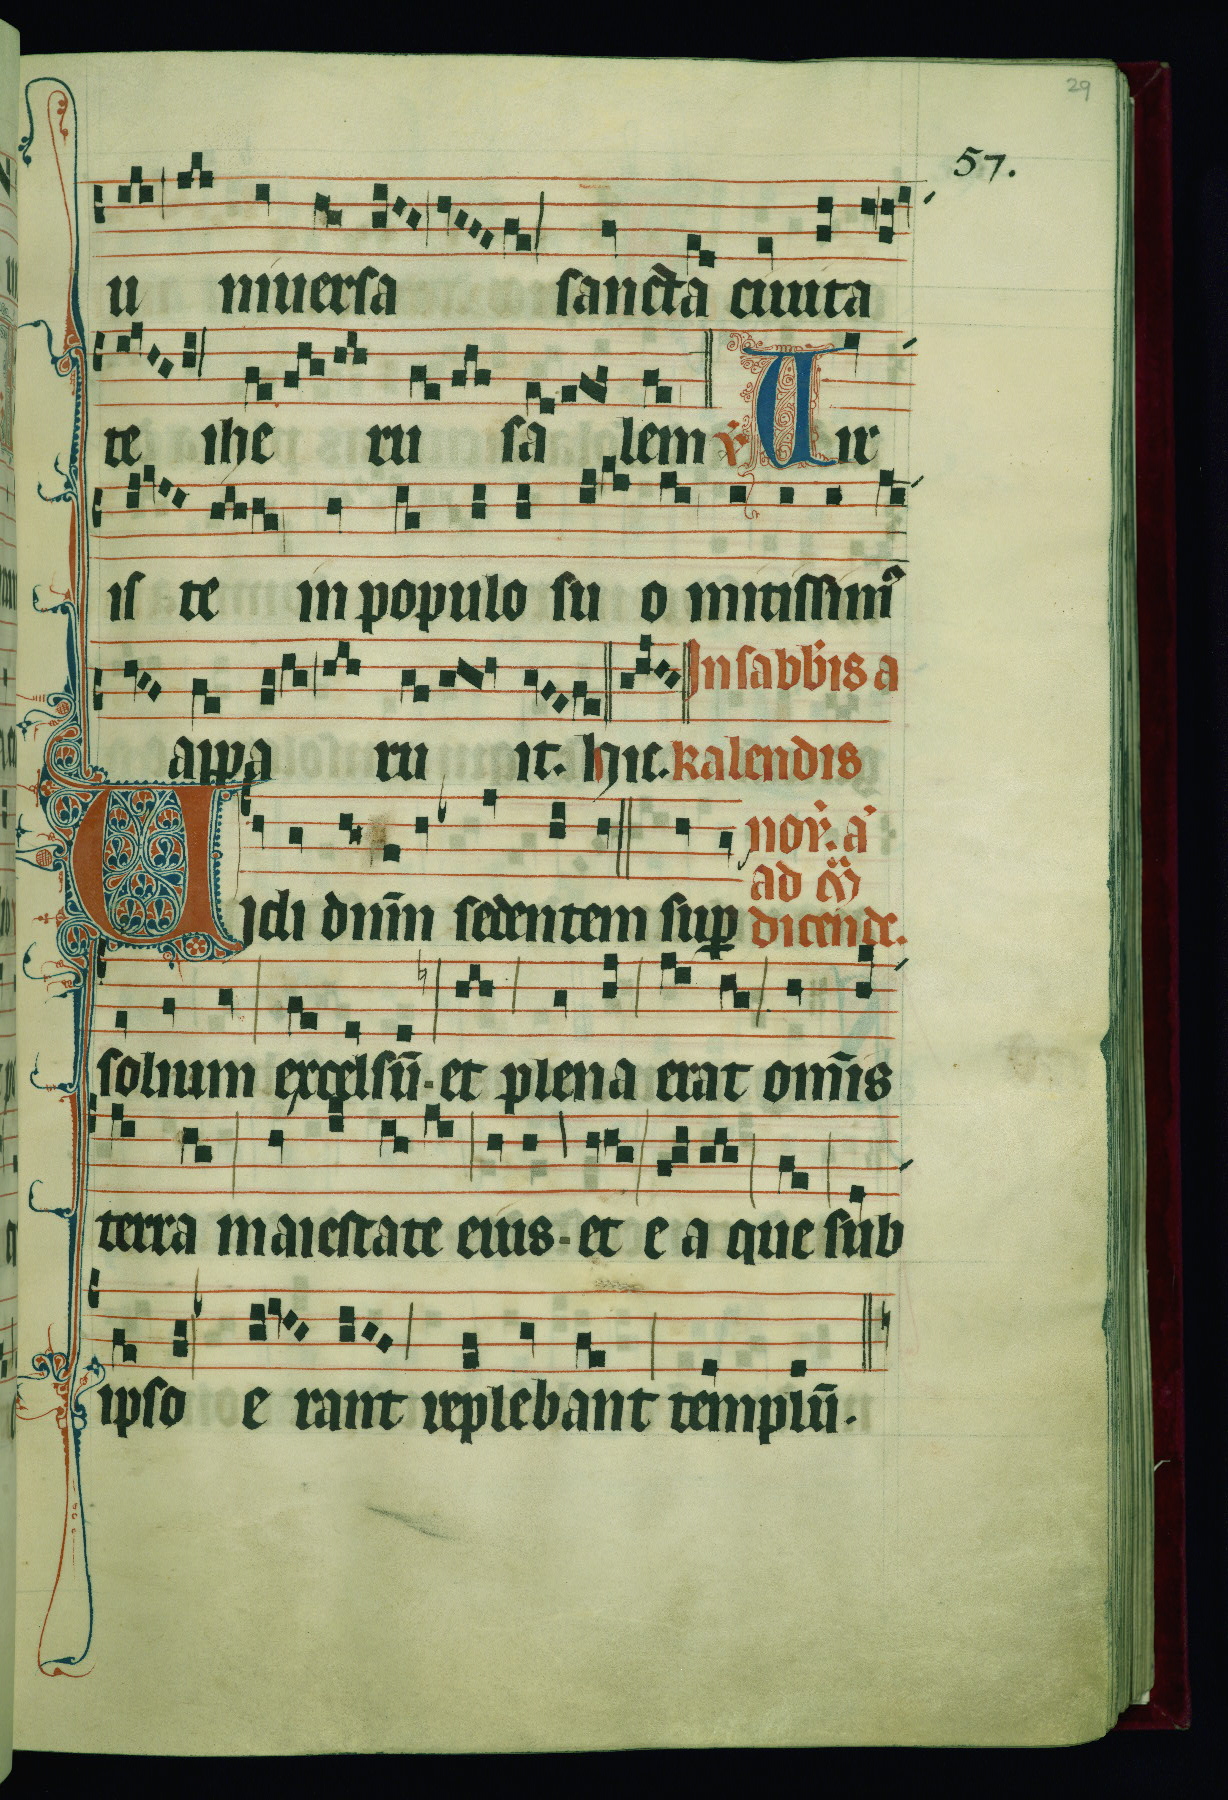 29
57.
u niuersa sancta ciuita
te ihe ru sa lem ℣ Uir
is te in populo su o mitissim᷒
In sabb̃is a
appa ru it. hic. kalendis
nou̾. a̾
ad
Uidi dñm sedentem sup
dicende.
solium excelsũ. et plena erat om̃is
terra maiestate eius. et e a que sub
ipso e rant replebant templũ.